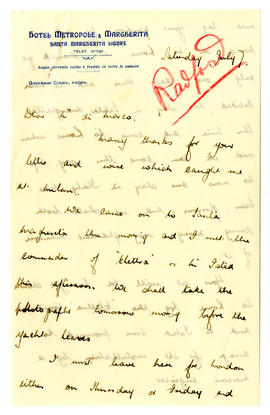 HOTEL METROPOLE & MARGHERITA
SANTA MARGHERITA LIGURE
Acqua corrente calda e fredda in tutte le camere
GIOVANNI CIANA, PROPR.
Saturday July 7
Radford
Dear Mr di Marco.
Many thanks for your
letter and wire which caught me
at Milan.
We came on to Santa
Margherita this morning and I met the
commander of "Elettra" this
afternoon. We shall take the
photographs tomorrow morning before the
yacht leaves
I must leave here for London
either on Thursday or Friday and